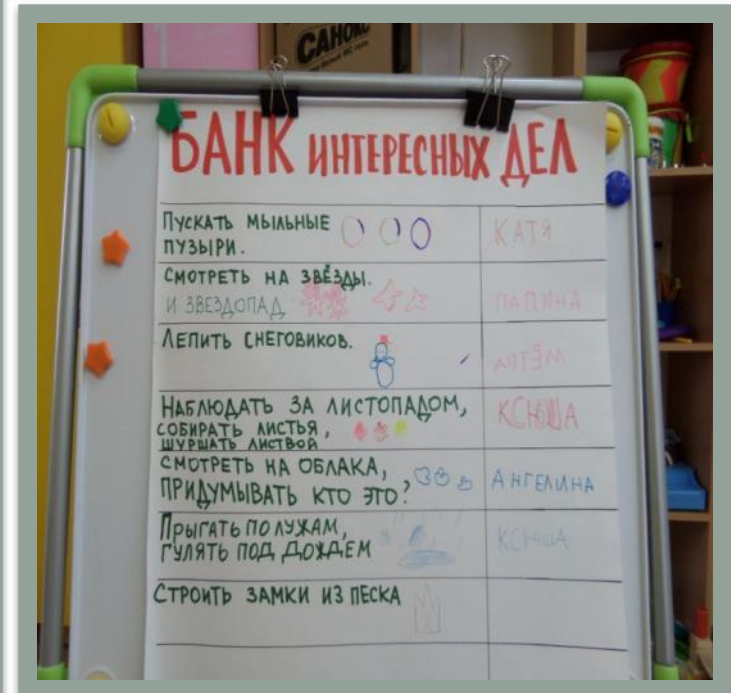 САНОКС
БАНК ИНТЕРЕСНЫХ ДЕЛ
ПУСКАТЬ МЫЛЬНЫЕ
ПУЗЫРИ.
КАТЯ
СМОТРЕТЬ НА ЗВЁЗДЫ.
И ЗВЕЗДОПАД
ЛЕПИТЬ СНЕГОВИКОВ.
НАБЛЮДАТЬ ЗА ЛИСТОПАДОМ,
СОБИРАТЬ ЛИСТЬЯ,
ШУРШАТЬ ЛИСТВОЙ
КСЮША
СМОТРЕТЬ НА ОБЛАКА,
ПРИДУМЫВАТЬ КТО ЭТО?
АНГЕЛИНА
ПРЫГАТЬ ПО ЛУЖАМ,
ГУЛЯТЬ ПОД ДОЖДЁМ
КСЮША
СТРОИТЬ ЗАМКИ ИЗ ПЕСКА